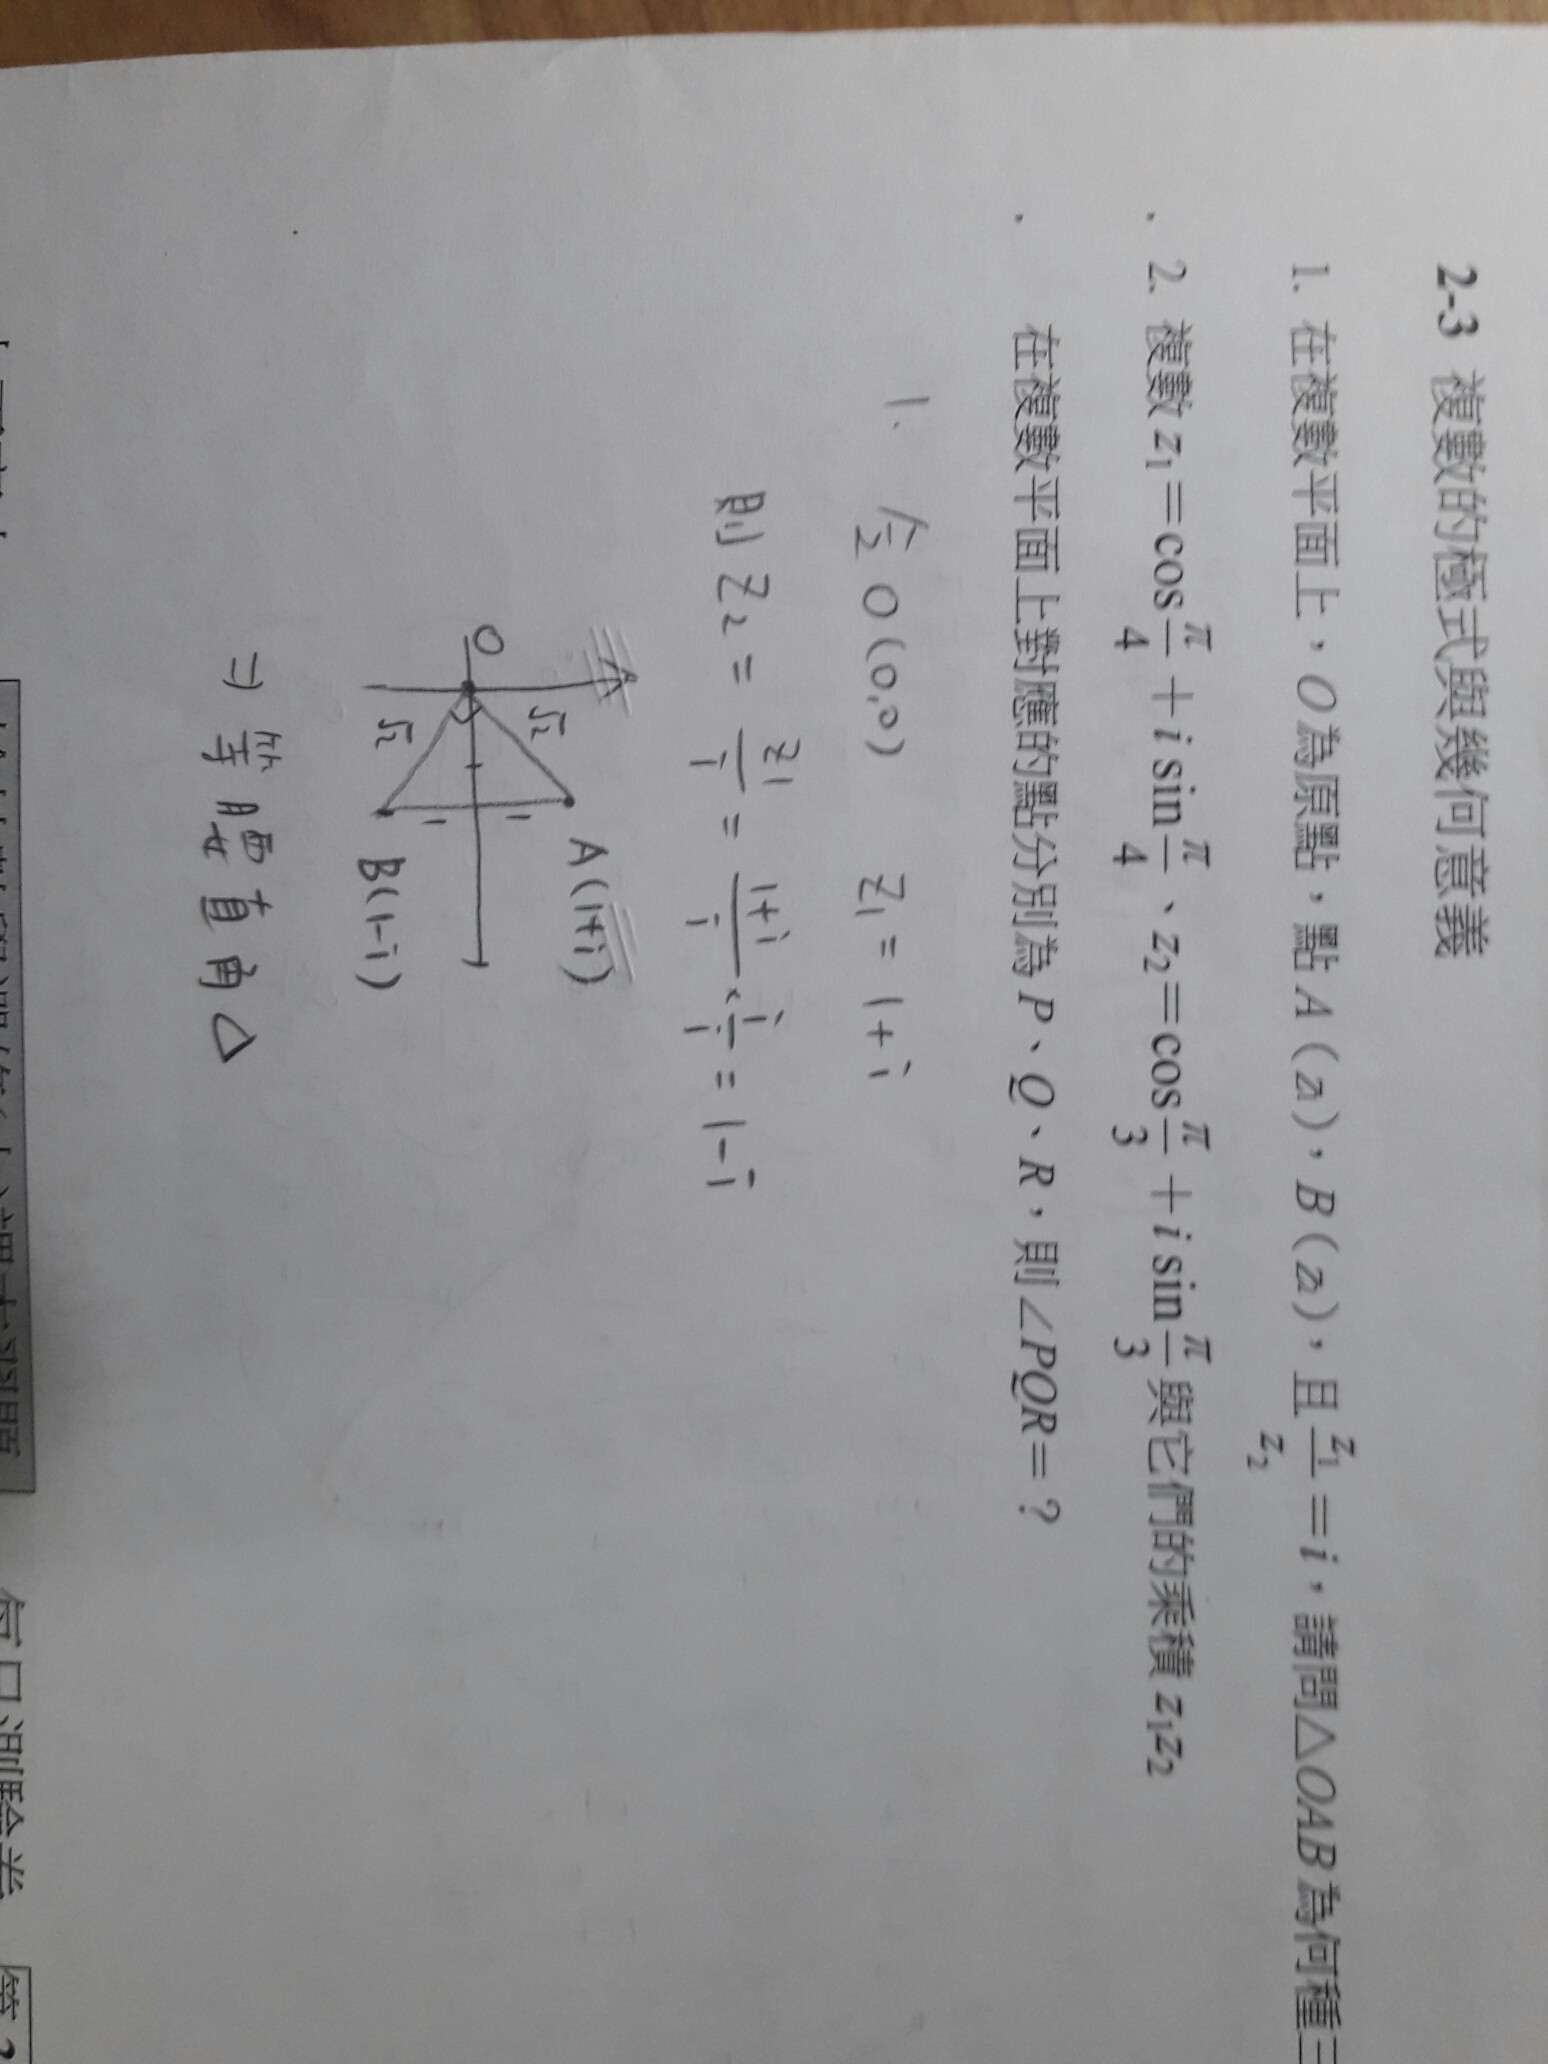 2-3 複數的極式與幾何意義
1. 在複數平面上,O為原點,點A(z₁),B(z₂),且z₁/z₂=i,請問△OAB為何種三
2. 複數z₁=cos π/4+i sin π/4、z₂=cos π/3+i sin π/3與它們的乘積z₁z₂
在複數平面上對應的點分別為P、Q、R,則∠PQR=?
1. 令O(0,0) z₁=1+i
則z₂=z₁/i=(1+i)/i×i/i=1-i
A(1+i)
√2
1
O
√2
1
B(1-i)
⇒等腰直角△
每日測驗卷